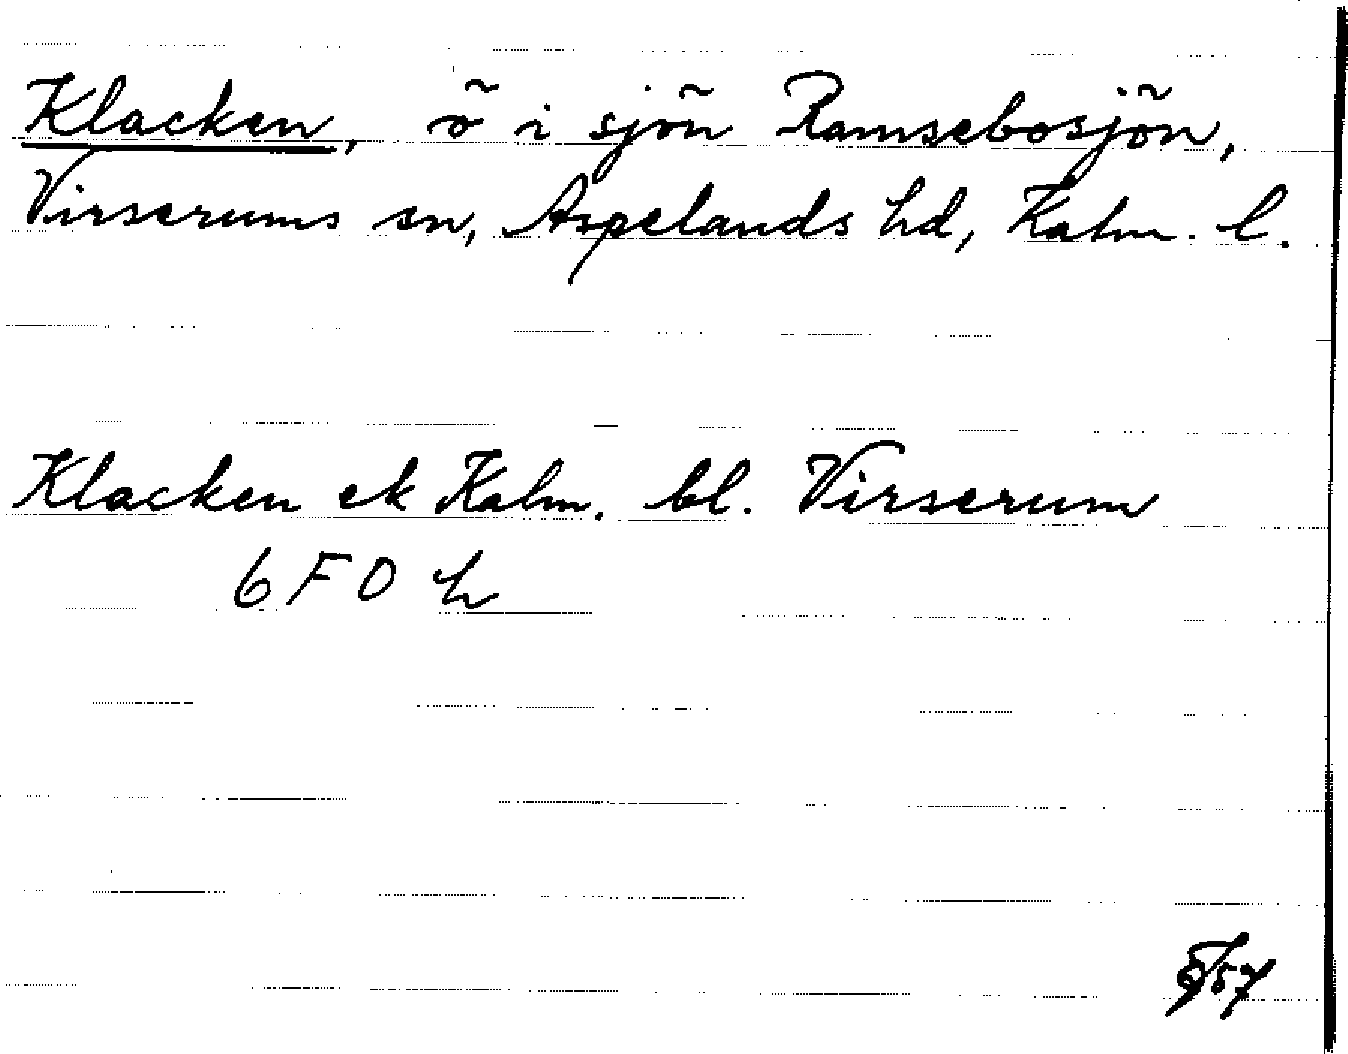 Klacken, ö i sjön Ramsebosjön,
Virserums sn, Aspelands hd, Kalm. l.
Klacken ek Kalm. bl. Virserum
6 F 0 h